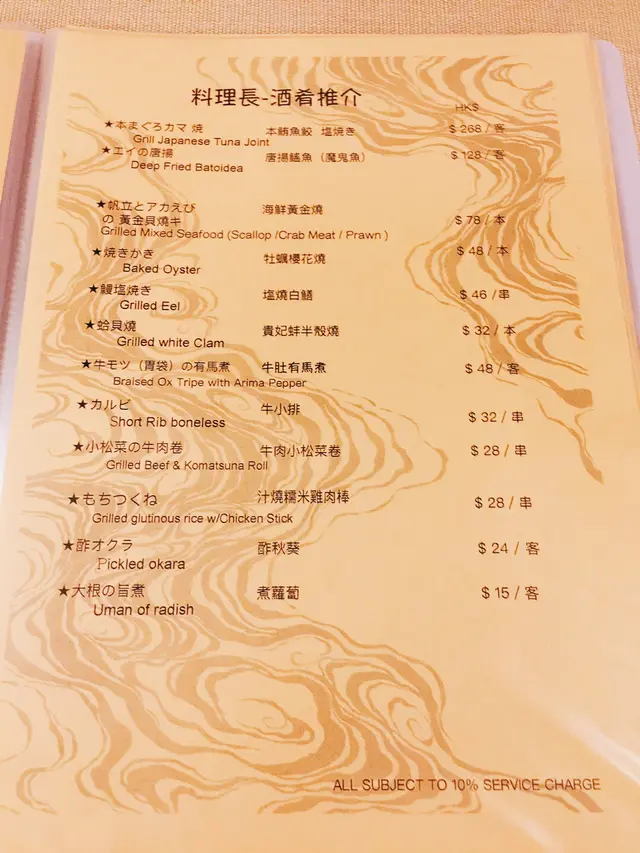 料理長-酒肴推介
HK$
★本まぐろカマ 焼 本鮪魚鮫 塩焼き $ 268 / 客
Grill Japanese Tuna Joint
★エイの唐揚 唐揚鰩魚（魔鬼魚） $ 128 / 客
Deep Fried Batoidea
★帆立とアカえび 海鮮黃金燒
の 黃金貝燒キ $ 78 / 本
Grilled Mixed Seafood (Scallop /Crab Meat / Prawn )
★焼きかき 牡蠣櫻花燒 $ 48 / 本
Baked Oyster
★鰻塩焼き 塩燒白鱔 $ 46 / 串
Grilled Eel
★蛤貝燒 貴妃蚌半殼燒 $ 32 / 本
Grilled white Clam
★牛モツ（胃袋）の有馬煮 牛肚有馬煮 $ 48 / 客
Braised Ox Tripe with Arima Pepper
★カルビ 牛小排 $ 32 / 串
Short Rib boneless
★小松菜の牛肉卷 牛肉小松菜卷 $ 28 / 串
Grilled Beef & Komatsuna Roll
★もちつくね 汁燒糯米雞肉棒 $ 28 / 串
Grilled glutinous rice w/Chicken Stick
★酢オクラ 酢秋葵 $ 24 / 客
Pickled okara
★大根の旨煮 煮蘿蔔 $ 15 / 客
Uman of radish
ALL SUBJECT TO 10% SERVICE CHARGE